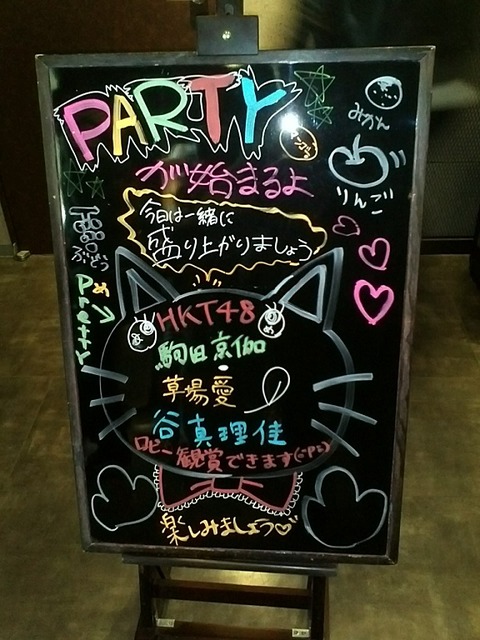 PARTY
が始まるよ
みかん
りんご
今日は一緒に
盛り上がりましょう
ぶどう
Pretty
HKT48
駒田京伽
草場愛
谷真理佳
ロビー観賞できます
楽しみましょう